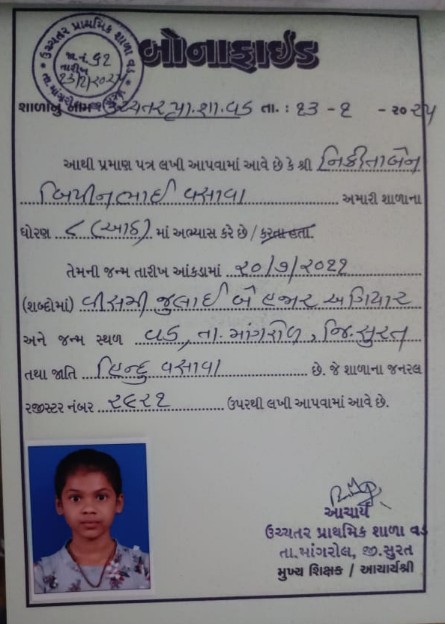 ઉચ્ચતર પ્રાથમિક શાળા વડ
જા.નં. ૬૨
તારીખ
૨૩/૧/૨૦૨૫
તા. માંગરોલ
બોનાફાઈડ
શાળાનું નામ : ઉચ્ચતર પ્રા. શા. વડ તા. : ૨૩ - ૧ - ૨૦૨૫
આથી પ્રમાણ પત્ર લખી આપવામાં આવે છે કે શ્રી નિકીતાબેન
બિપીનભાઈ વસાવા અમારી શાળાના
ધોરણ ૮ (આઠ) માં અભ્યાસ કરે છે / કરતા હતા.
તેમની જન્મ તારીખ આંકડામાં ૨૦/૭/૨૦૧૧
(શબ્દોમાં) વીસમી જુલાઈ બે હજાર અગિયાર
અને જન્મ સ્થળ વડ, તા. માંગરોળ, જિ. સુરત
તથા જાતિ હિન્દુ વસાવા છે. જે શાળાના જનરલ
રજીસ્ટર નંબર ૨૬૨૧ ઉપરથી લખી આપવામાં આવે છે.
આચાર્ય
ઉચ્ચતર પ્રાથમિક શાળા વડ
તા. માંગરોલ, જી. સુરત
મુખ્ય શિક્ષક / આચાર્યશ્રી